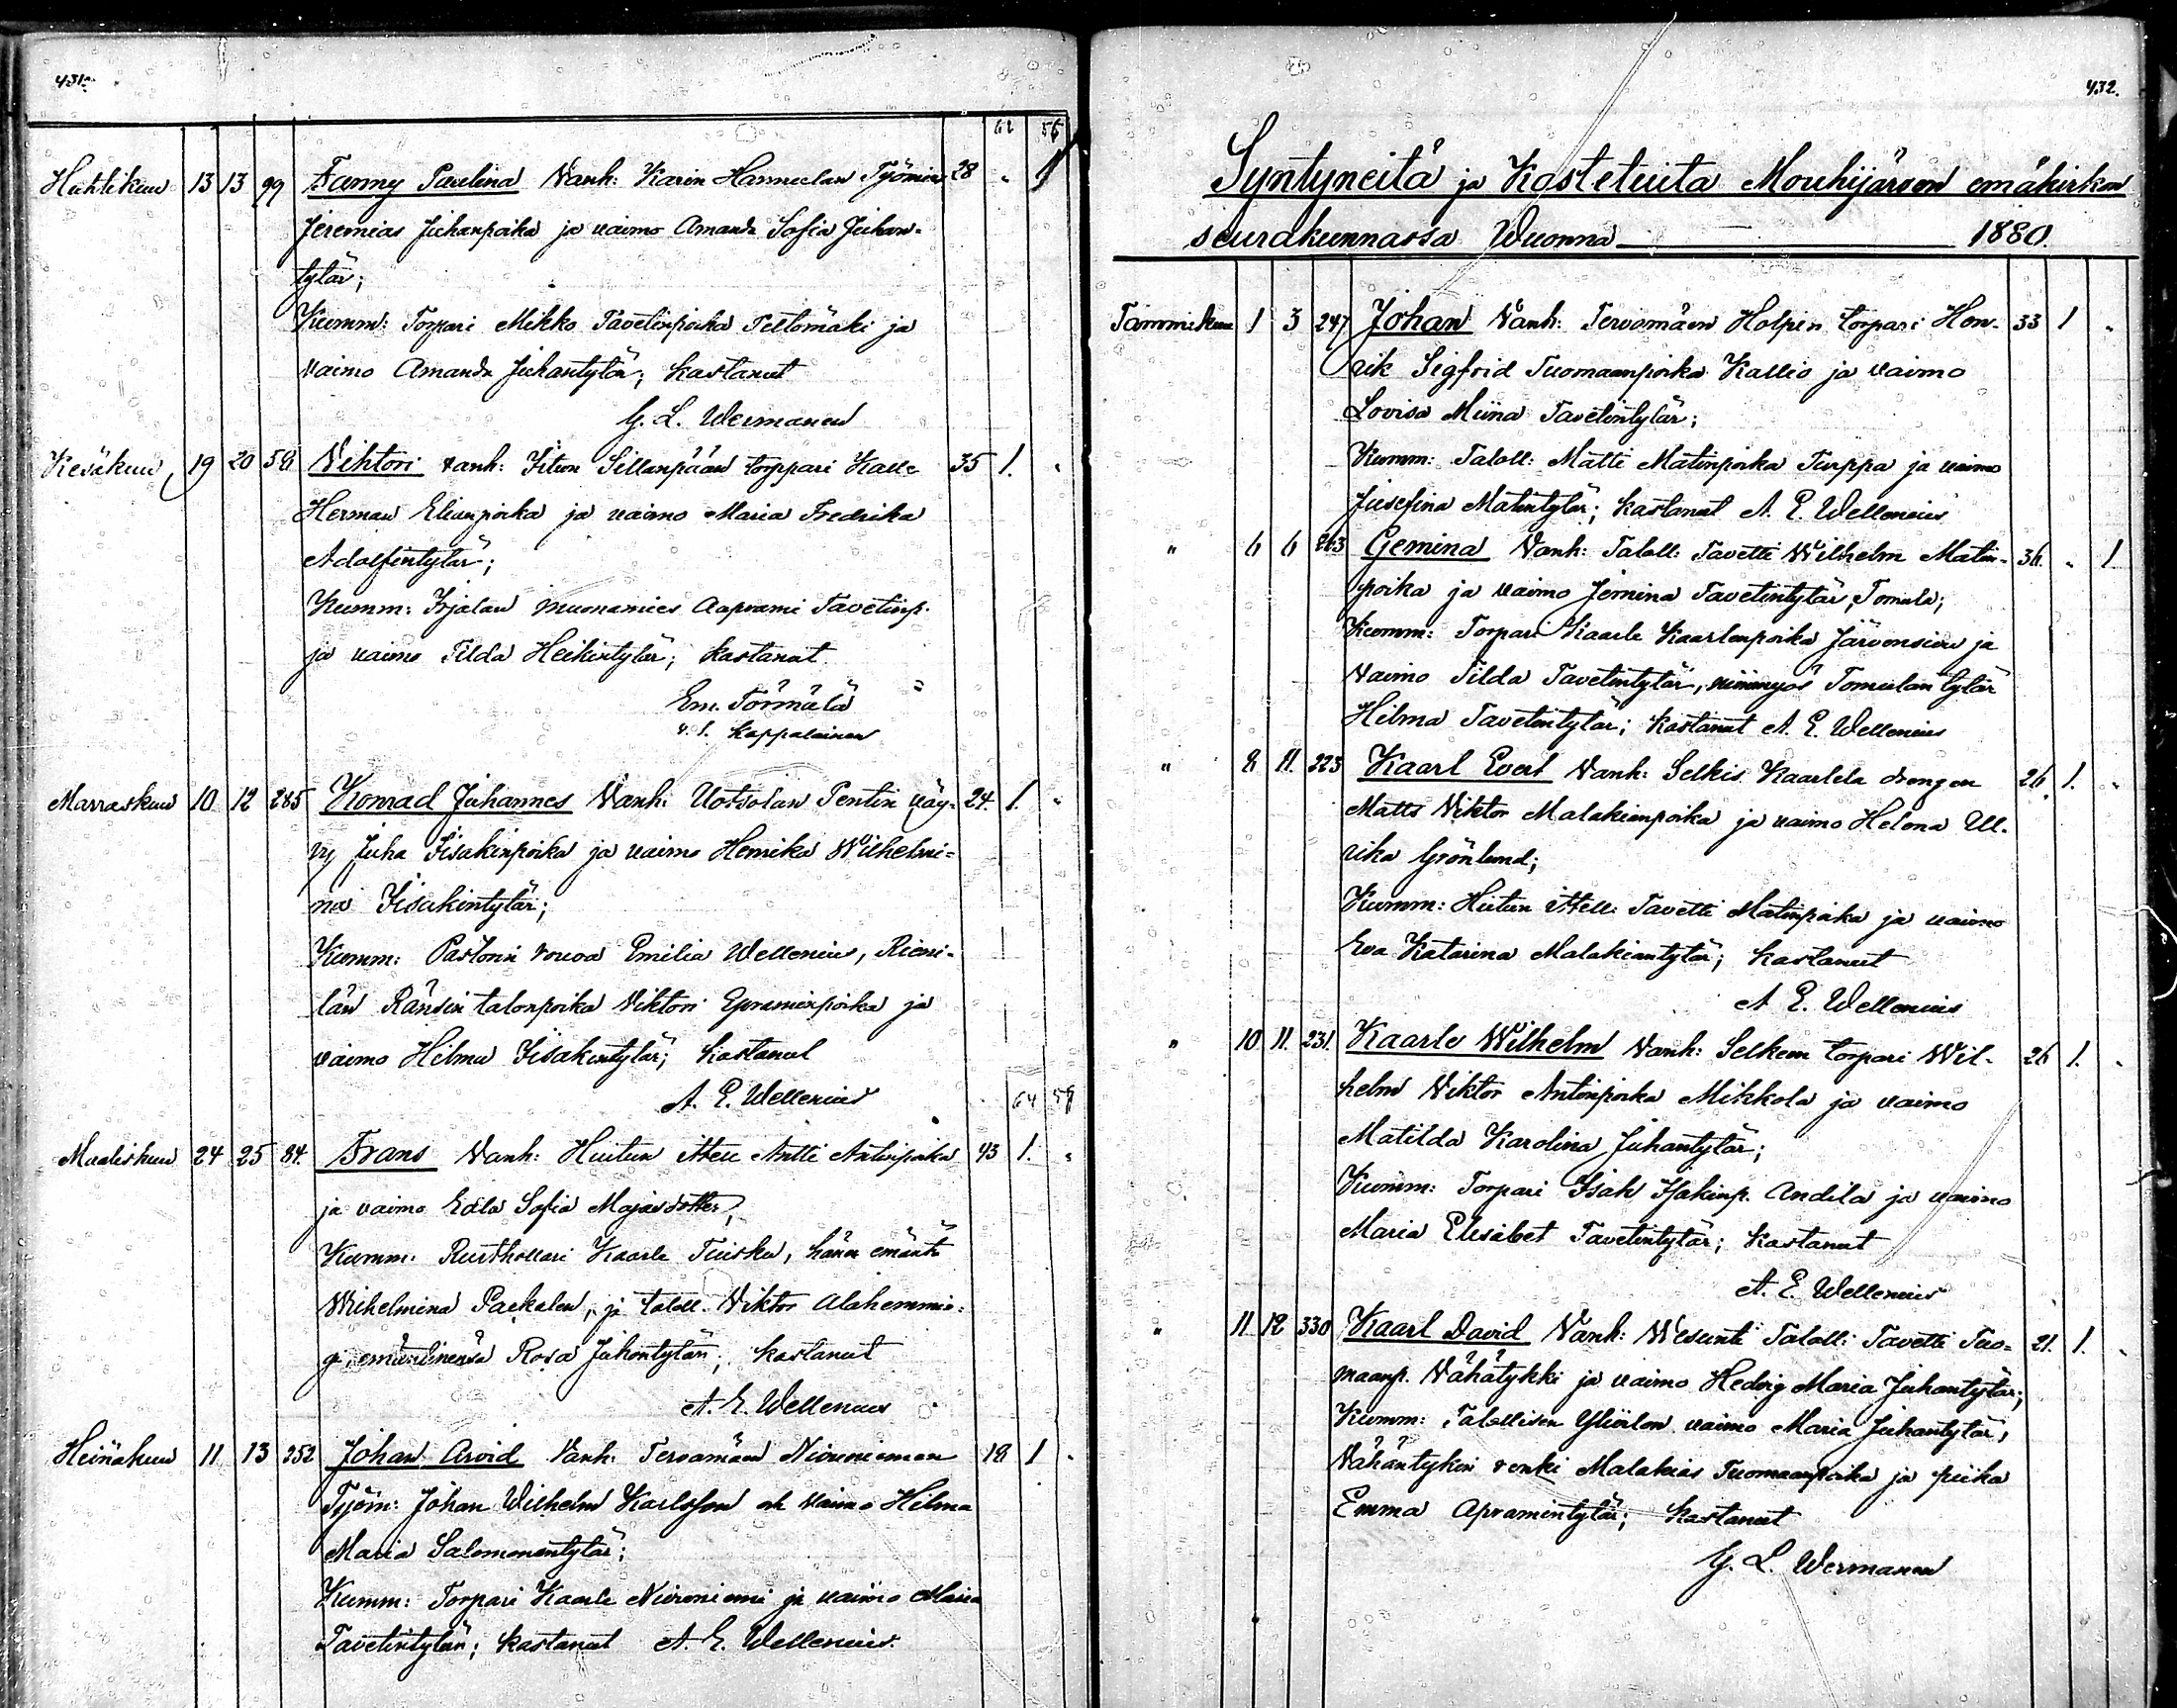 431.
62 56
Huhtikuu 13 13 99 Fanny Paulina Vanh: Karin Hannulan Työmies 28 " 1
Jeremias Juhanpoika ja vaimo Amanda Sofia Juhan-
tytär;
Kumm: Torpari Mikko Tavetinpoika Peltomäki ja
vaimo Amanda Juhantytär; kastanut
G. L. Wermanen
Kesäkuu 19 20 58 Vihtori vanh: Iitun Sillanpään torppari Kalle 35 1. "
Herman Elianpoika ja vaimo Maria Fredrika
Adolfintytär;
Kumm: Irjalan muonamies Aaprami Tavetinp.
ja vaimo Tilda Heikintytär; kastanut
Em. Törmälä
v. t. Kappalainen
Marraskuu 10 12 285 Konrad Juhannes Vanh: Uotsolan Pentin väy- 24. 1. "
vy Juha Iisakinpoika ja vaimo Henrika Wilhelmi-
na Iisakintytär;
Kumm: Pastorin rouva Emilia Wellenius, Rieni-
län Ränsin talonpoika Viktori Epraminpoika ja
vaimo Hilma Iisakintytär; kastanut
A. E. Wellenius
64 58
Maaliskuu 24 25 84. Frans Vanh: Huitun Antti Antinpoika 43 1. "
ja vaimo Edla Sofia Majasdotter,
Kumm: Rusthollari Kaarle Tuisku, hänen emäntä
Wilhelmina Paekalen, ja taloll. Viktor Alahemmin-
gi, emäntinensä Rosa Juhontytär; kastanut
A. E. Wellenius
Heinäkuu 11 13 252 Johan Arvid Vanh: Tervamäen Niuroniemen 18 1 "
Työm: Johan Wilhelm Karlsson ah vaimo Hilma
Maria Salomonentytär;
Kumm: Torpari Kaarle Niuroniemi ja vaimo Maria
Tavetintytär; kastanut A. E. Wellenius.
432.
Syntyneitä ja Kastetuita Mouhijärven emäkirkon
seurakunnassa Wuonna 1880.
Tammikuu 1 3 247 Johan Vanh: Tervamäen Holpin torpari Hen- 33 1 "
rik Sigfrid Tuomaanpoika Kallio ja vaimo
Lovisa Miina Tavetintytär;
Kumm: Taloll: Matti Matinpoika Turppa ja vaimo
Jusefina Matintytär; kastanut A. E. Wellenius
" 6 6 263 Gemina Vanh: Taloll: Tavetti Wilhelm Matin- 36. " 1
poika ja vaimo Jemina Tavetintytär, Tomula;
Kumm: Torpari Kaarle Kaarlenpoika Järvensivu ja
vaimo Tilda Tavetintytär, niinmyös Tomulan tytär
Hilma Tavetintytär; kastanut A. E. Wellenius
" 8 11. 223 Kaarl Evert Vanh: Selkis Kaarlela drengen 26. 1. "
Matts Viktor Malakianpoika ja vaimo Helena Ul-
rika Grönlund;
Kumm: Huitun Itsell: Tavetti Matinpoika ja vaimo
Eva Katarina Malakiantytär; kastanut
A E. Wellenius
" 10 11. 231. Kaarle Wilhelm Vanh: Selkeen torpari Wil- 26 1. "
helm Viktor Antinpoika Mikkola ja vaimo
Matilda Karolina Juhantytär;
Kumm: Torpari Isak Isakinp. Andila ja vaimo
Maria Elisabet Tavetintytär; kastanut
A. E. Wellenius
" 11 12 330 Kaarl David Vanh: Wesunti Taloll: Tavetti Tuo- 21. 1. "
maanp. Vähätykki ja vaimo Hedvig Maria Juhantytär;
Kumm: Talollisen vaimo Maria Juhantytär,
Vähäntykin renki Malakias Tuomaanpoika ja piika
Emma Apramintytär; kastanut
G. L. Wermanen